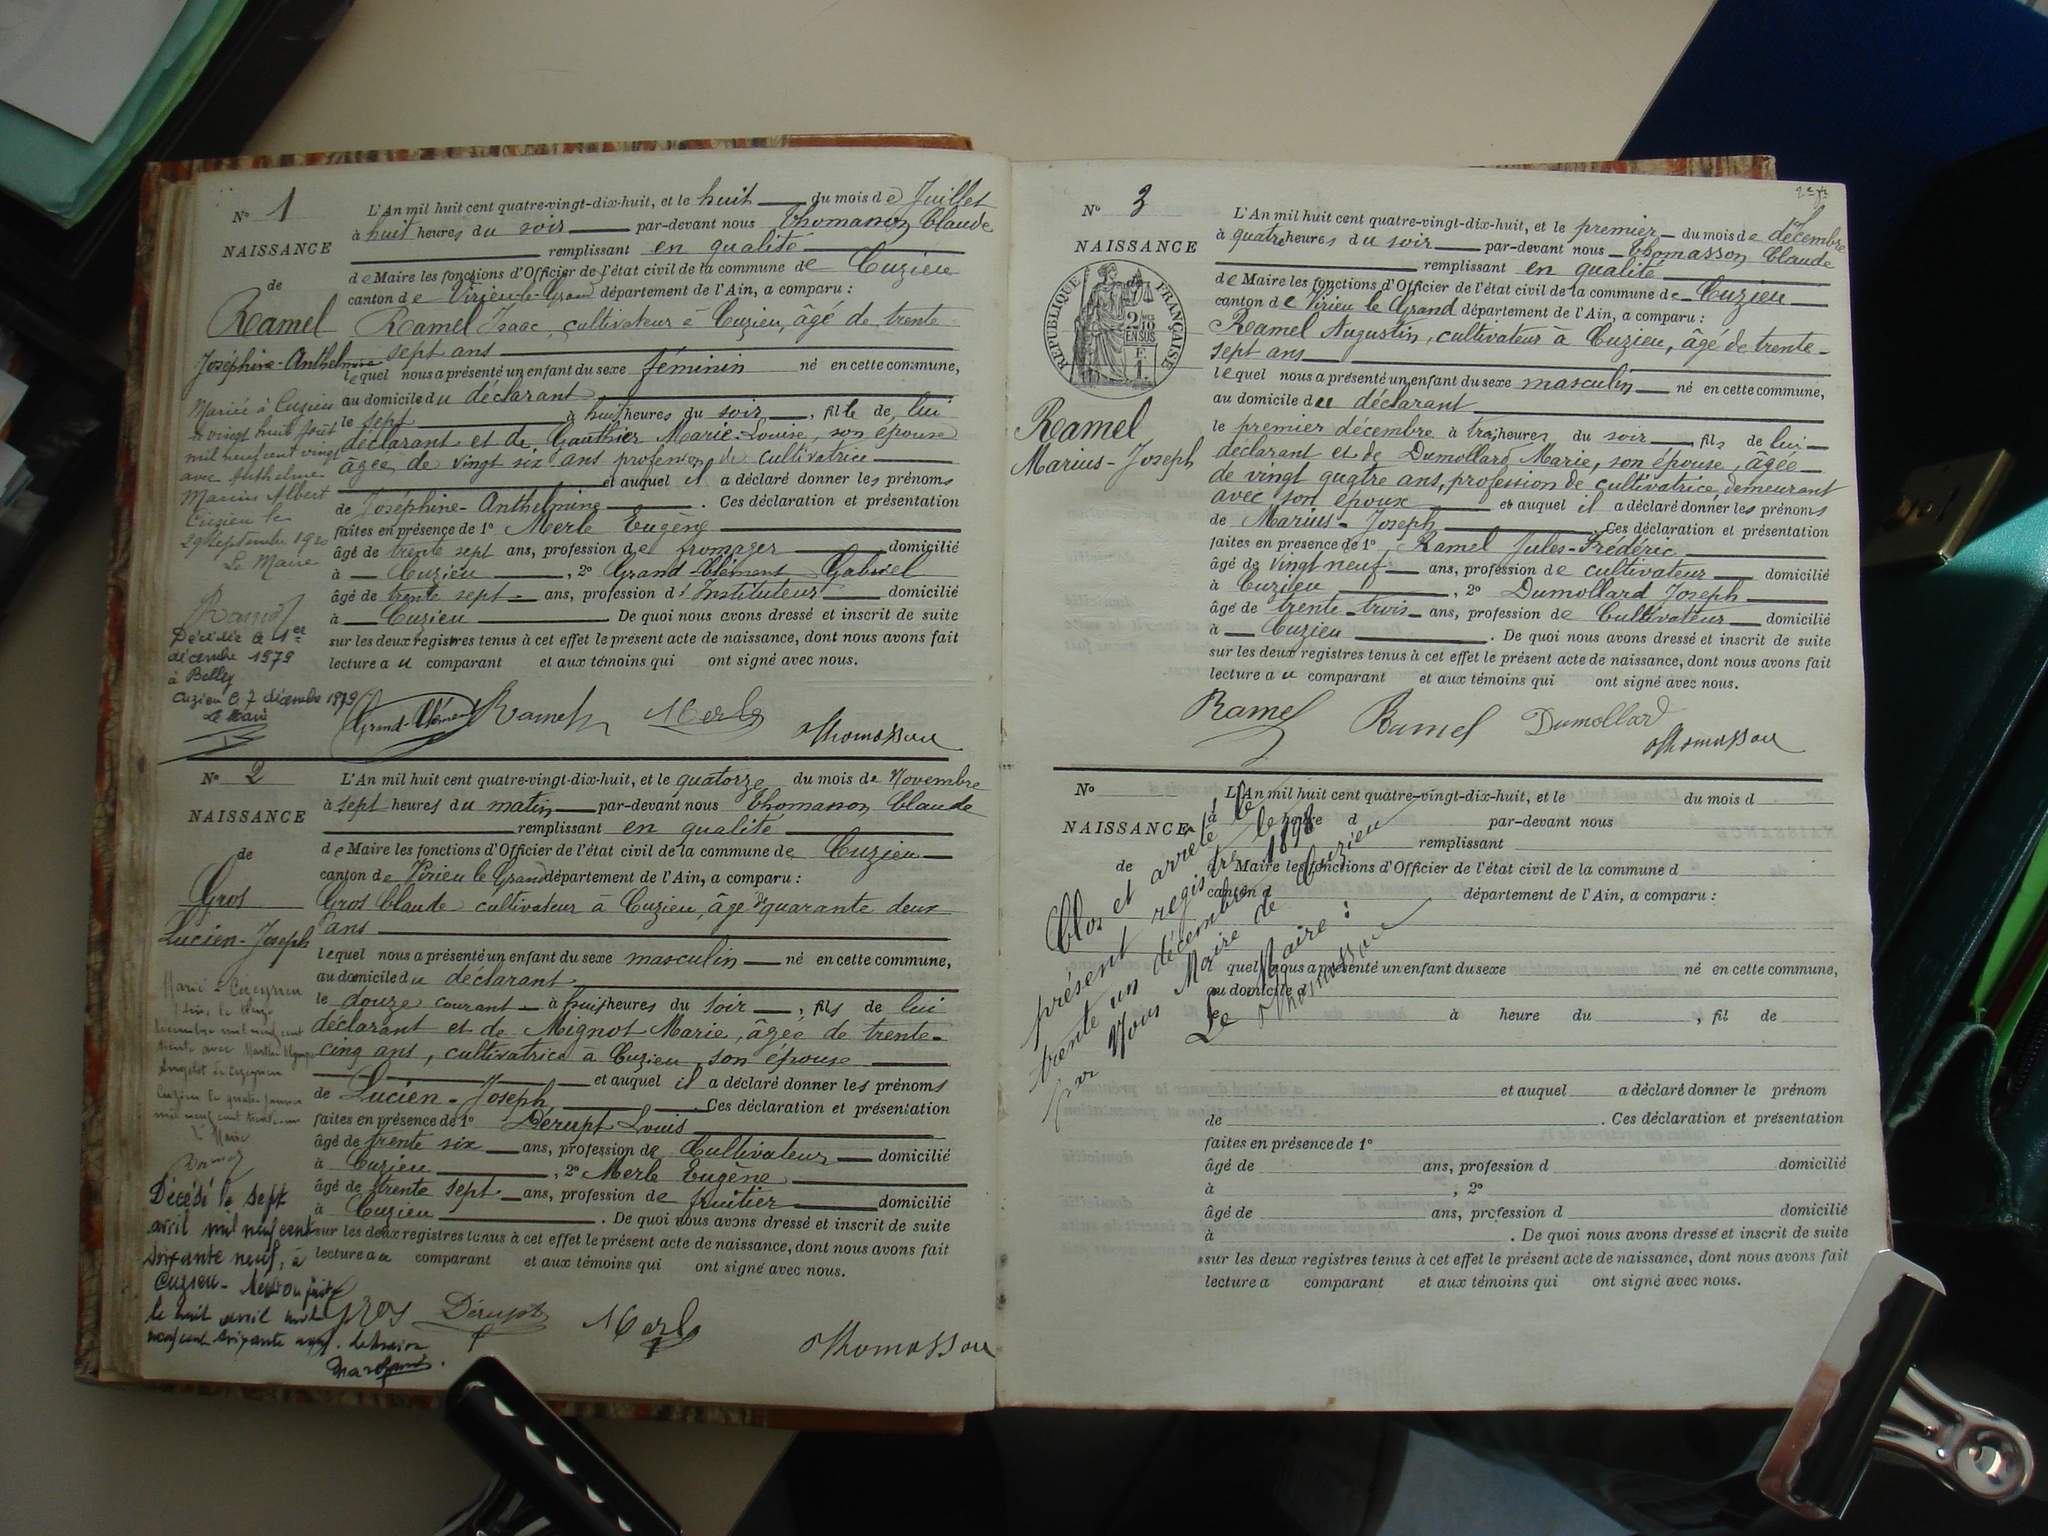 N° 1
NAISSANCE
de
Ramel
Joséphine-Anthelmine
Mariée à Cuzieu
le vingt huit août
mil neuf cent vingt
avec Anthelme
Marius Albert
Cuzieu le
29 septembre 1920
Le Maire
Ramel
Décédée le 1er
décembre 1979
à Belley
Cuzieu le 7 décembre 1979
Le Maire
L'An mil huit cent quatre-vingt-dix-huit, et le huit du mois de Juillet
à huit heures du soir par-devant nous Thomasson Claude
remplissant en qualité
de Maire les fonctions d'Officier de l'état civil de la commune de Cuzieu
canton de Virieu-le-Grand département de l'Ain, a comparu :
Ramel Isaac, cultivateur à Cuzieu, âgé de trente
sept ans
lequel nous a présenté un enfant du sexe féminin né en cette commune,
au domicile du déclarant
le sept à huit heures du soir, fille de lui
déclarant et de Gauthier Marie-Louise, son épouse
âgée de vingt six ans profession de cultivatrice
et auquel il a déclaré donner les prénoms
de Joséphine-Anthelmine. Ces déclaration et présentation
faites en présence de 1° Merle Eugène
âgé de trente sept ans, profession de fromager domicilié
à Cuzieu, 2° Grand-Clément Gabriel
âgé de trente sept ans, profession d'Instituteur domicilié
à Cuzieu. De quoi nous avons dressé et inscrit de suite
sur les deux registres tenus à cet effet le présent acte de naissance, dont nous avons fait
lecture au comparant et aux témoins qui ont signé avec nous.
Grand-Clément Ramel Merle
Thomasson
N° 2
NAISSANCE
de
Gros
Lucien-Joseph
Décédé le sept
avril mil neuf cent
soixante neuf, à
Cuzieu
le huit avril mil
neuf cent soixante neuf. Le Maire
L'An mil huit cent quatre-vingt-dix-huit, et le quatorze du mois de Novembre
à sept heures du matin par-devant nous Thomasson Claude
remplissant en qualité
de Maire les fonctions d'Officier de l'état civil de la commune de Cuzieu
canton de Virieu le Grand département de l'Ain, a comparu :
Gros Claude cultivateur à Cuzieu, âgé de quarante deux
ans
lequel nous a présenté un enfant du sexe masculin né en cette commune,
au domicile du déclarant
le douze courant à huit heures du soir, fils de lui
déclarant et de Mignot Marie, âgée de trente-
cinq ans, cultivatrice à Cuzieu, son épouse
et auquel il a déclaré donner les prénoms
de Lucien-Joseph. Ces déclaration et présentation
faites en présence de 1° Dérupt Louis
âgé de trente six ans, profession de Cultivateur domicilié
à Cuzieu, 2° Merle Eugène
âgé de trente sept ans, profession de fruitier domicilié
à Cuzieu. De quoi nous avons dressé et inscrit de suite
sur les deux registres tenus à cet effet le présent acte de naissance, dont nous avons fait
lecture au comparant et aux témoins qui ont signé avec nous.
Gros Dérupt Merle
Thomasson
N° 3
NAISSANCE
RÉPUBLIQUE FRANÇAISE
2/10 EN SUS
F. 1.
Ramel
Marius-Joseph
L'An mil huit cent quatre-vingt-dix-huit, et le premier du mois de décembre
à quatre heures du soir par-devant nous Thomasson Claude
remplissant en qualité
de Maire les fonctions d'Officier de l'état civil de la commune de Cuzieu
canton de Virieu le Grand département de l'Ain, a comparu :
Ramel Augustin, cultivateur à Cuzieu, âgé de trente-
sept ans
lequel nous a présenté un enfant du sexe masculin né en cette commune,
au domicile du déclarant
le premier décembre à trois heures du soir, fils de lui
déclarant et de Dumollard Marie, son épouse, âgée
de vingt quatre ans, profession de cultivatrice demeurant
avec son époux et auquel il a déclaré donner les prénoms
de Marius-Joseph. Ces déclaration et présentation
faites en présence de 1° Ramel Jules-Frédéric
âgé de vingt neuf ans, profession de cultivateur domicilié
à Cuzieu, 2° Dumollard Joseph
âgé de trente-trois ans, profession de Cultivateur domicilié
à Cuzieu. De quoi nous avons dressé et inscrit de suite
sur les deux registres tenus à cet effet le présent acte de naissance, dont nous avons fait
lecture au comparant et aux témoins qui ont signé avec nous.
Ramel Ramel Dumollard
Thomasson
N°
NAISSANCE
de
L'An mil huit cent quatre-vingt-dix-huit, et le du mois d
à heure d par-devant nous
remplissant
Maire les fonctions d'Officier de l'état civil de la commune d
canton d département de l'Ain, a comparu :
quel nous a présenté un enfant du sexe né en cette commune,
au domicile d
le à heure du, fil de
et auquel a déclaré donner le prénom
de. Ces déclaration et présentation
faites en présence de 1°
âgé de ans, profession d domicilié
à, 2°
âgé de ans, profession d domicilié
à. De quoi nous avons dressé et inscrit de suite
sur les deux registres tenus à cet effet le présent acte de naissance, dont nous avons fait
lecture a comparant et aux témoins qui ont signé avec nous.
Clos et arrêté le
présent registre le
trente un décembre 1898
par Nous Maire de Cuzieu
Le Maire :
Thomasson